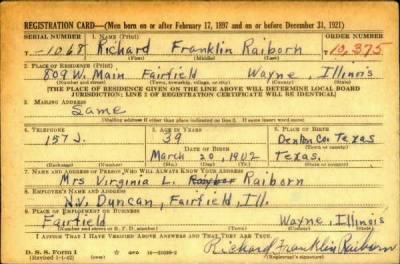 REGISTRATION CARD—(Men born on or after February 17, 1897 and on or before December 31, 1921)
SERIAL NUMBER 1. NAME (Print) ORDER NUMBER
T-1068 Richard Franklin Raiborn 10,375
(First) (Middle) (Last)
2. PLACE OF RESIDENCE (Print)
809 W. Main Fairfield Wayne, Illinois
(Number and street) (Town, township, village, or city) (County) (State)
[THE PLACE OF RESIDENCE GIVEN ON THE LINE ABOVE WILL DETERMINE LOCAL BOARD
JURISDICTION; LINE 2 OF REGISTRATION CERTIFICATE WILL BE IDENTICAL]
3. MAILING ADDRESS
Same
[Mailing address if other than place indicated on line 2. If same insert word same]
4. TELEPHONE 5. AGE IN YEARS 6. PLACE OF BIRTH
157J. 39 Denton Co. Texas
DATE OF BIRTH (Town or county)
March 20, 1902 Texas.
(Exchange) (Number) (Mo.) (Day) (Yr.) (State or country)
7. NAME AND ADDRESS OF PERSON WHO WILL ALWAYS KNOW YOUR ADDRESS
Mrs Virginia L. Raiborn
8. EMPLOYER'S NAME AND ADDRESS
N.V. Duncan, Fairfield, Ill.
9. PLACE OF EMPLOYMENT OR BUSINESS
Fairfield Wayne, Illinois
(Number and street or R. F. D. number) (Town) (County) (State)
I AFFIRM THAT I HAVE VERIFIED ABOVE ANSWERS AND THAT THEY ARE TRUE.
D. S. S. Form 1
(Revised 1-1-42) (over) GPO Richard Franklin Raiborn
(Registrant's signature)